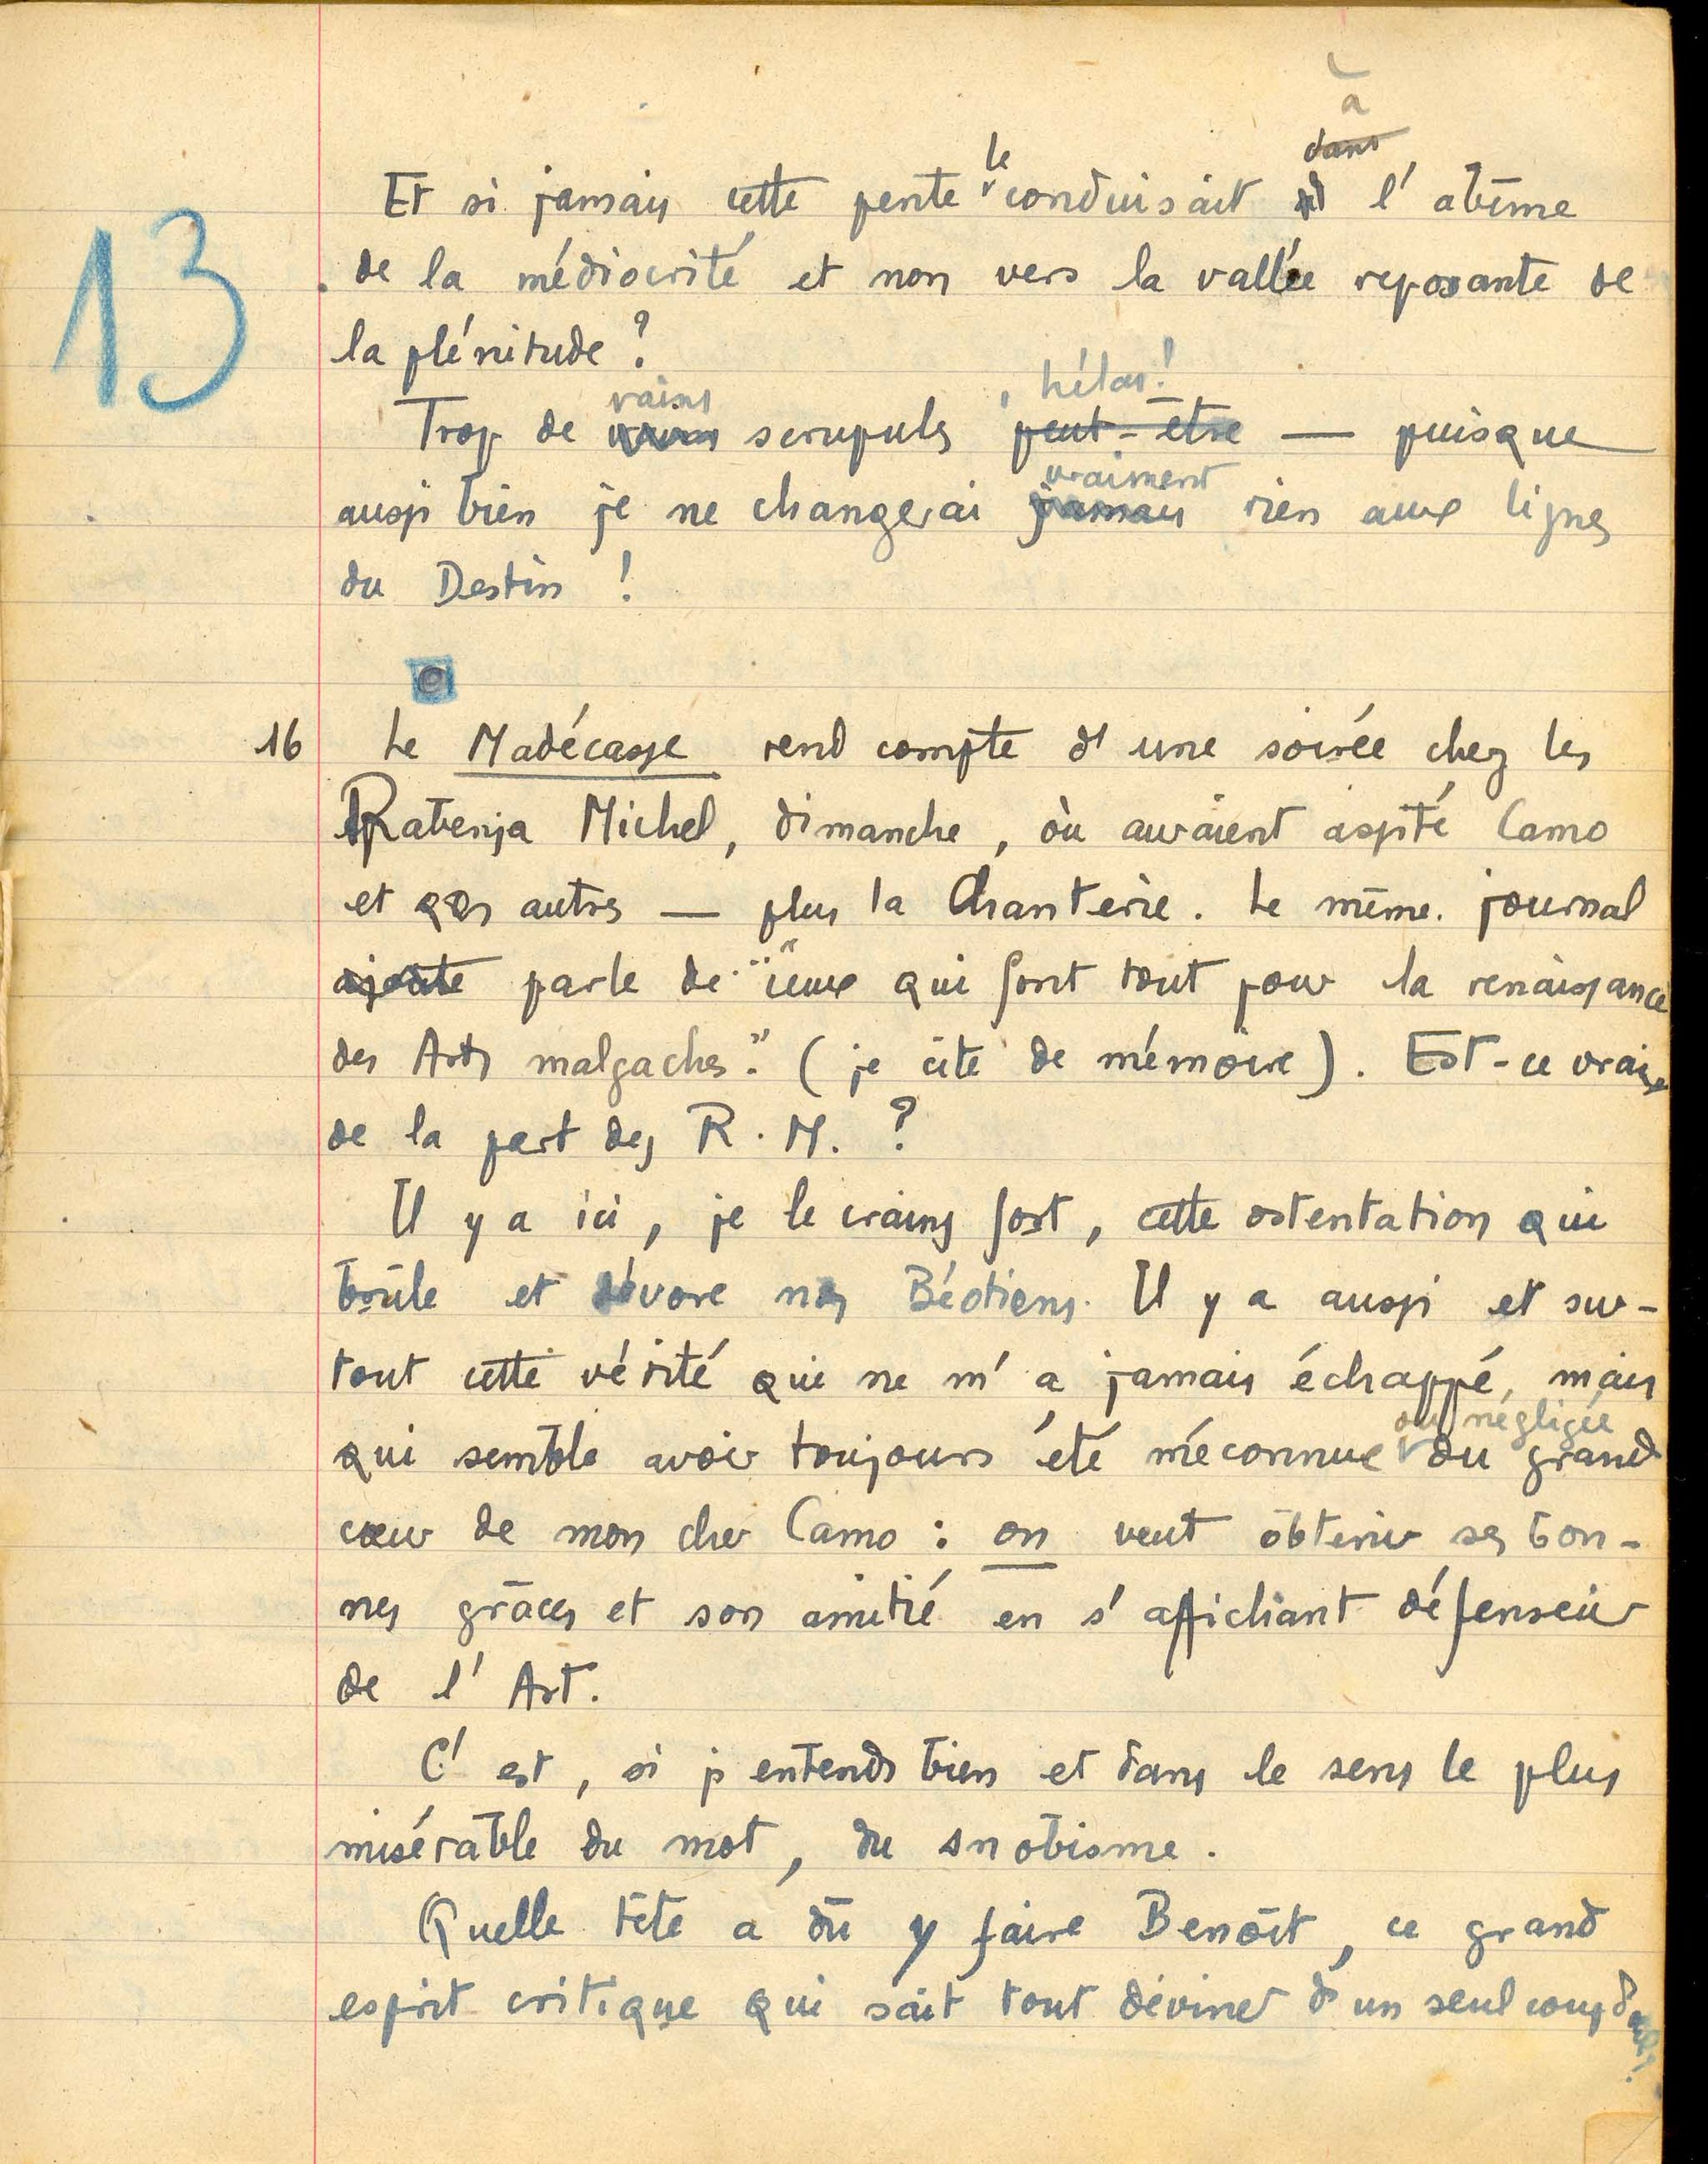 13
à
dans
Et si jamais cette pente le conduisait l'abîme
de la médiocrité et non vers la vallée reposante de
la plénitude ?
Trop de vains scrupules peut-être , hélas ! — puisque
aussi bien je ne changerai jamais vraiment rien aux lignes
du Destin !
16 Le Madécasse rend compte d'une soirée chez les
Rabenja Michel, dimanche, où auraient assité Camo
et qqs autres — plus la Chanterie. Le même journal
ajoute parle de "ceux qui font tout pour la renaissance
des Arts malgaches." (je cite de mémoire). Est-ce vrai
de la part des R. M. ?
Il y a ici, je le crains fort, cette ostentation qui
brûle et dévore nos Béotiens. Il y a aussi et sur-
tout cette vérité qui ne m'a jamais échappé, mais
qui semble avoir toujours été méconnue ou négligée du grand
cœur de mon cher Camo : on veut obtenir ses bon-
nes grâces et son amitié en s'affichant défenseur
de l'Art.
C'est, si j'entends bien et dans le sens le plus
misérable du mot, du snobisme.
Quelle tête a dû y faire Benoît, ce grand
esprit critique qui sait tout deviner d'un seul coup